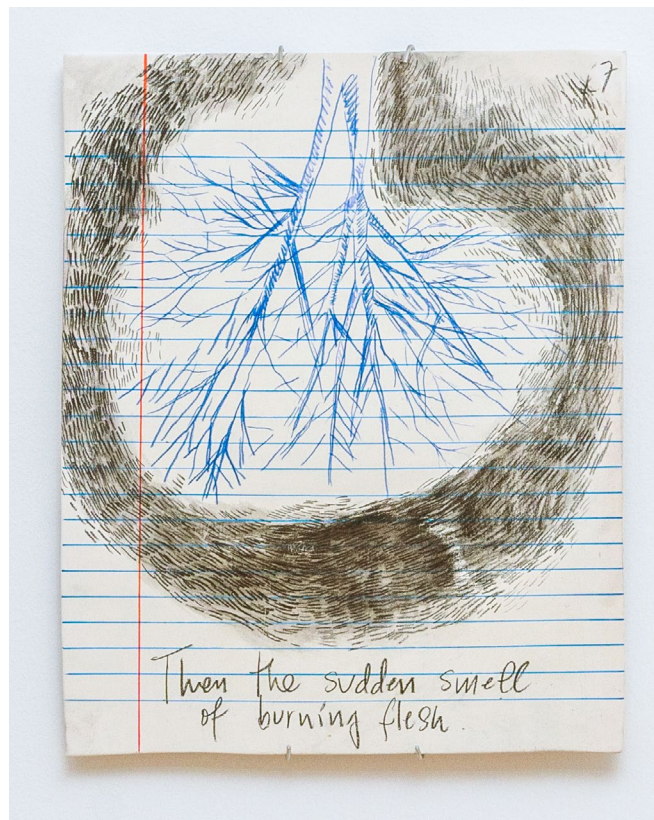 7
Then the sudden smell
of burning flesh.